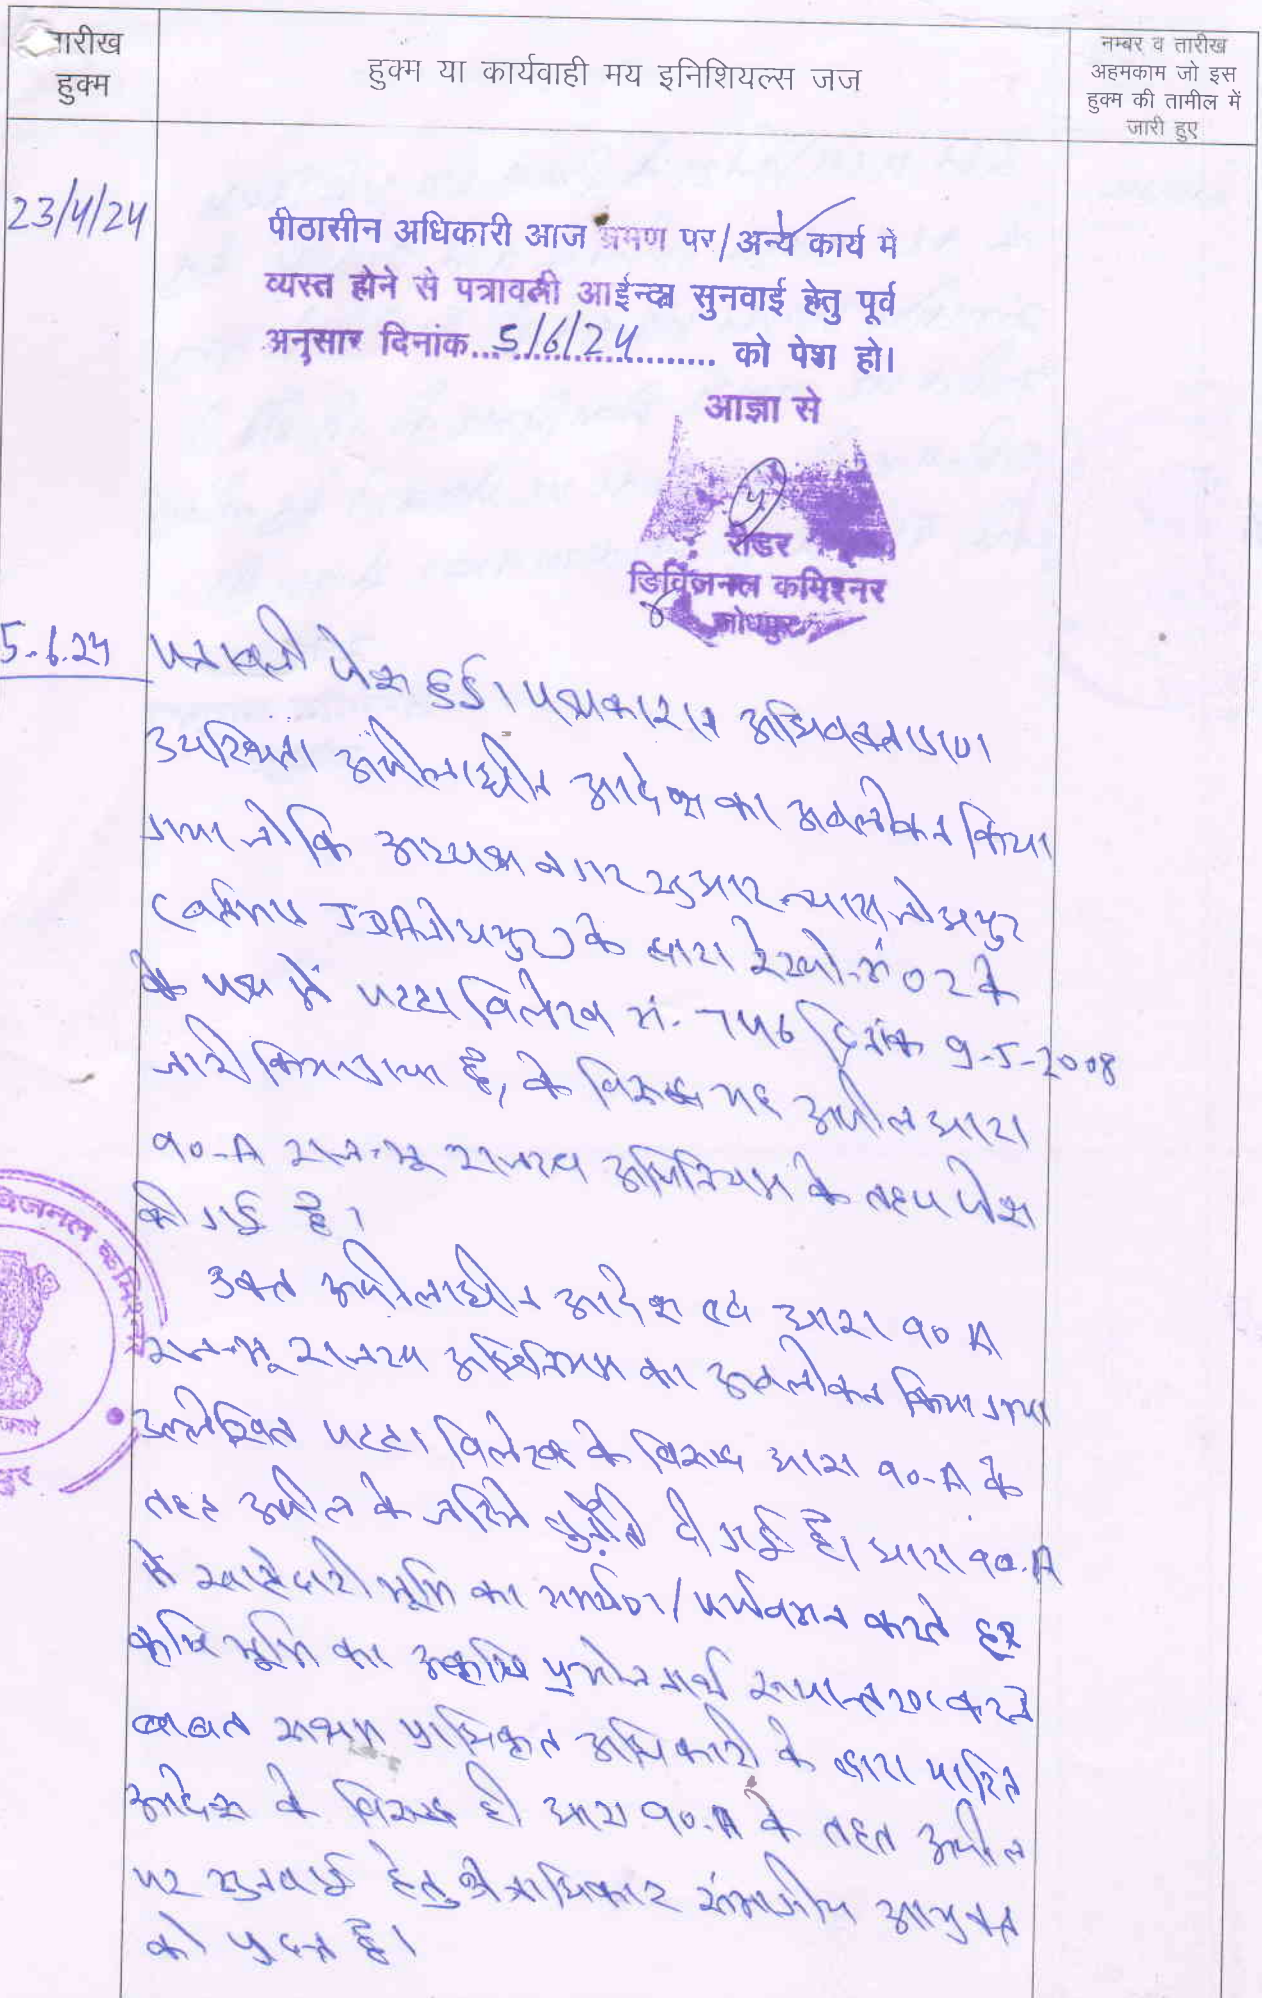 तारीख
हुक्म
हुक्म या कार्यवाही मय इनिशियल्स जज
नम्बर व तारीख
अहमकाम जो इस
हुक्म की तामील में
जारी हुए
23/4/24
पीठासीन अधिकारी आज भ्रमण पर/अन्य कार्य में
व्यस्त होने से पत्रावली आईन्दा सुनवाई हेतु पूर्व
अनुसार दिनांक...5/6/24... को पेश हो।
आज्ञा से
रीडर
डिविजनल कमिश्नर
जोधपुर
5.6.24
पत्रावली पेश हुई। पक्षकारान अधिवक्तागण
उपस्थित। अपीलाधीन आदेश का अवलोकन किया
गया जो कि अध्यक्ष नगर सुधार न्यास, जोधपुर
(वर्तमान JDA जोधपुर) के द्वारा रेस्पो. सं 02 के
के पक्ष में पट्टा विलेख सं. 746 दिनांक 9-5-2008
जारी किया गया है, के विरूद्ध यह अपील धारा
90-A राज. भू राजस्व अधिनियम के तहत पेश
की गई है।
उक्त अपीलाधीन आदेश एवं धारा 90 A
राज. भू राजस्व अधिनियम का अवलोकन किया गया
उल्लेखित पट्टा विलेख के विरूद्ध धारा 90-A के
तहत अपील के जरिये चुनौती दी गई है। धारा 90.A
में खातेदारी भूमि का समर्पण/पर्यवसान करते हुए
कृषि भूमि का अकृषि प्रयोजनार्थ रूपान्तरण करने
बाबत सक्षम प्राधिकृत अधिकारी के द्वारा पारित
आदेश के विरूद्ध ही धारा 90.A के तहत अपील
पर सुनवाई हेतु क्षेत्राधिकार संभागीय आयुक्त
को प्रदत्त है।